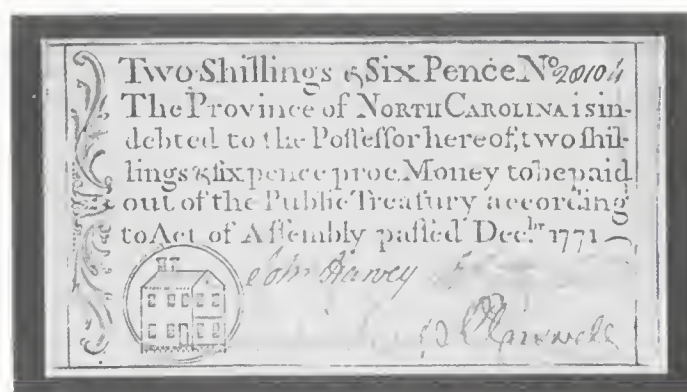 Two Shillings & Six Pence. No 20104
The Province of NORTH CAROLINA is in-
debted to the Poſſeſſor hereof, two ſhil-
lings & ſix pence proc. Money to be paid
out of the Public Treaſury according
to Act of Aſſembly paſſed Dec.br 1771
John Harvey